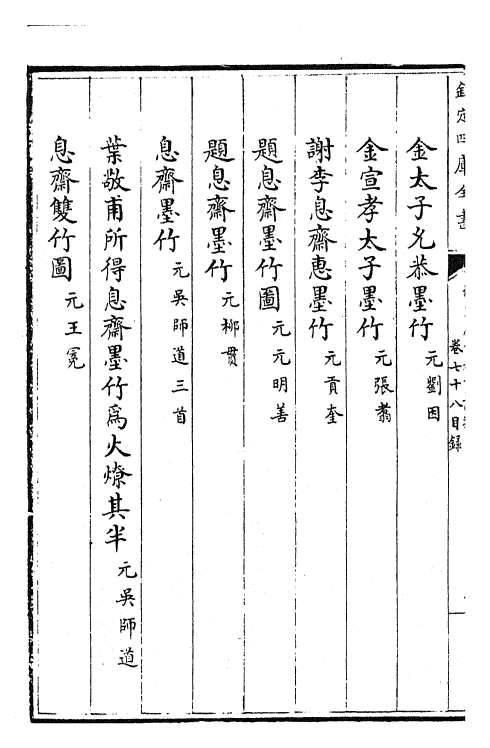 欽定四庫全書
卷七十八目録
金太子允恭墨竹 元劉因
金宣孝太子墨竹 元張翥
謝李息齋惠墨竹 元貢奎
題息齋墨竹圖 元元明善
題息齋墨竹 元柳貫
息齋墨竹 元吳師道三首
葉敬甫所得息齋墨竹爲火燎其半 元吳師道
息齋雙竹圖 元王冕